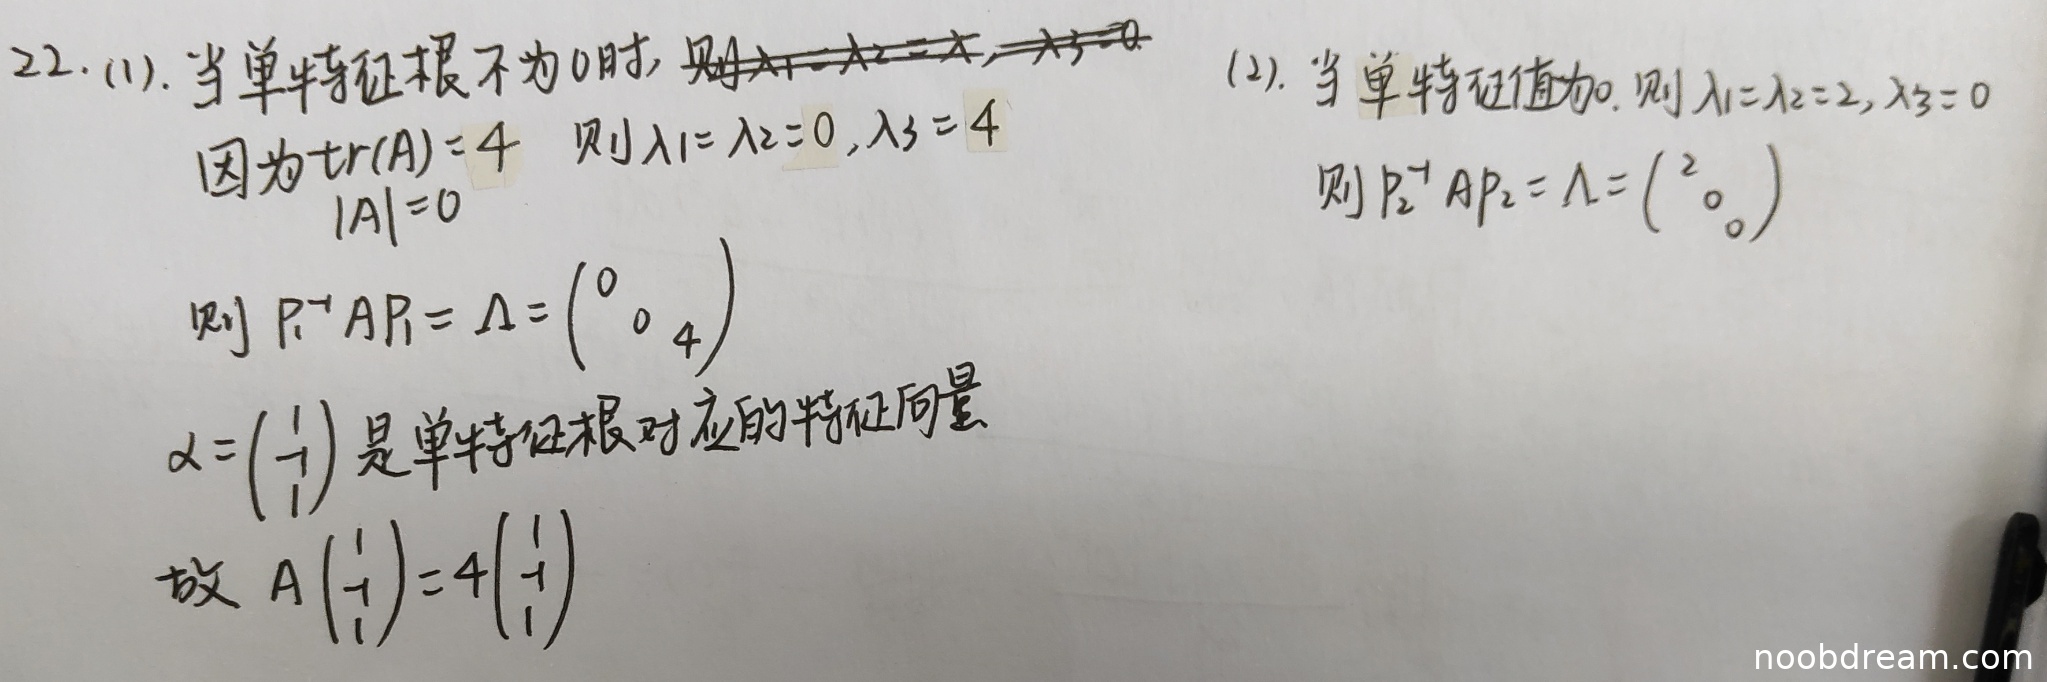 22.(1). 当单特征根不为0时, 则λ1=λ2=λ, λ3=0
因为tr(A)=4 则λ1=λ2=0,λ3=4
|A|=0
则 P₁⁻¹AP₁=Λ=(0 0 4)
α=(1 -1 1)是单特征根对应的特征向量
故 A(1 -1 1)=4(1 -1 1)
(2). 当单特征值为0. 则λ1=λ2=2, λ3=0
则P₂⁻¹AP₂=Λ=(2 0 0)
noobdream.com